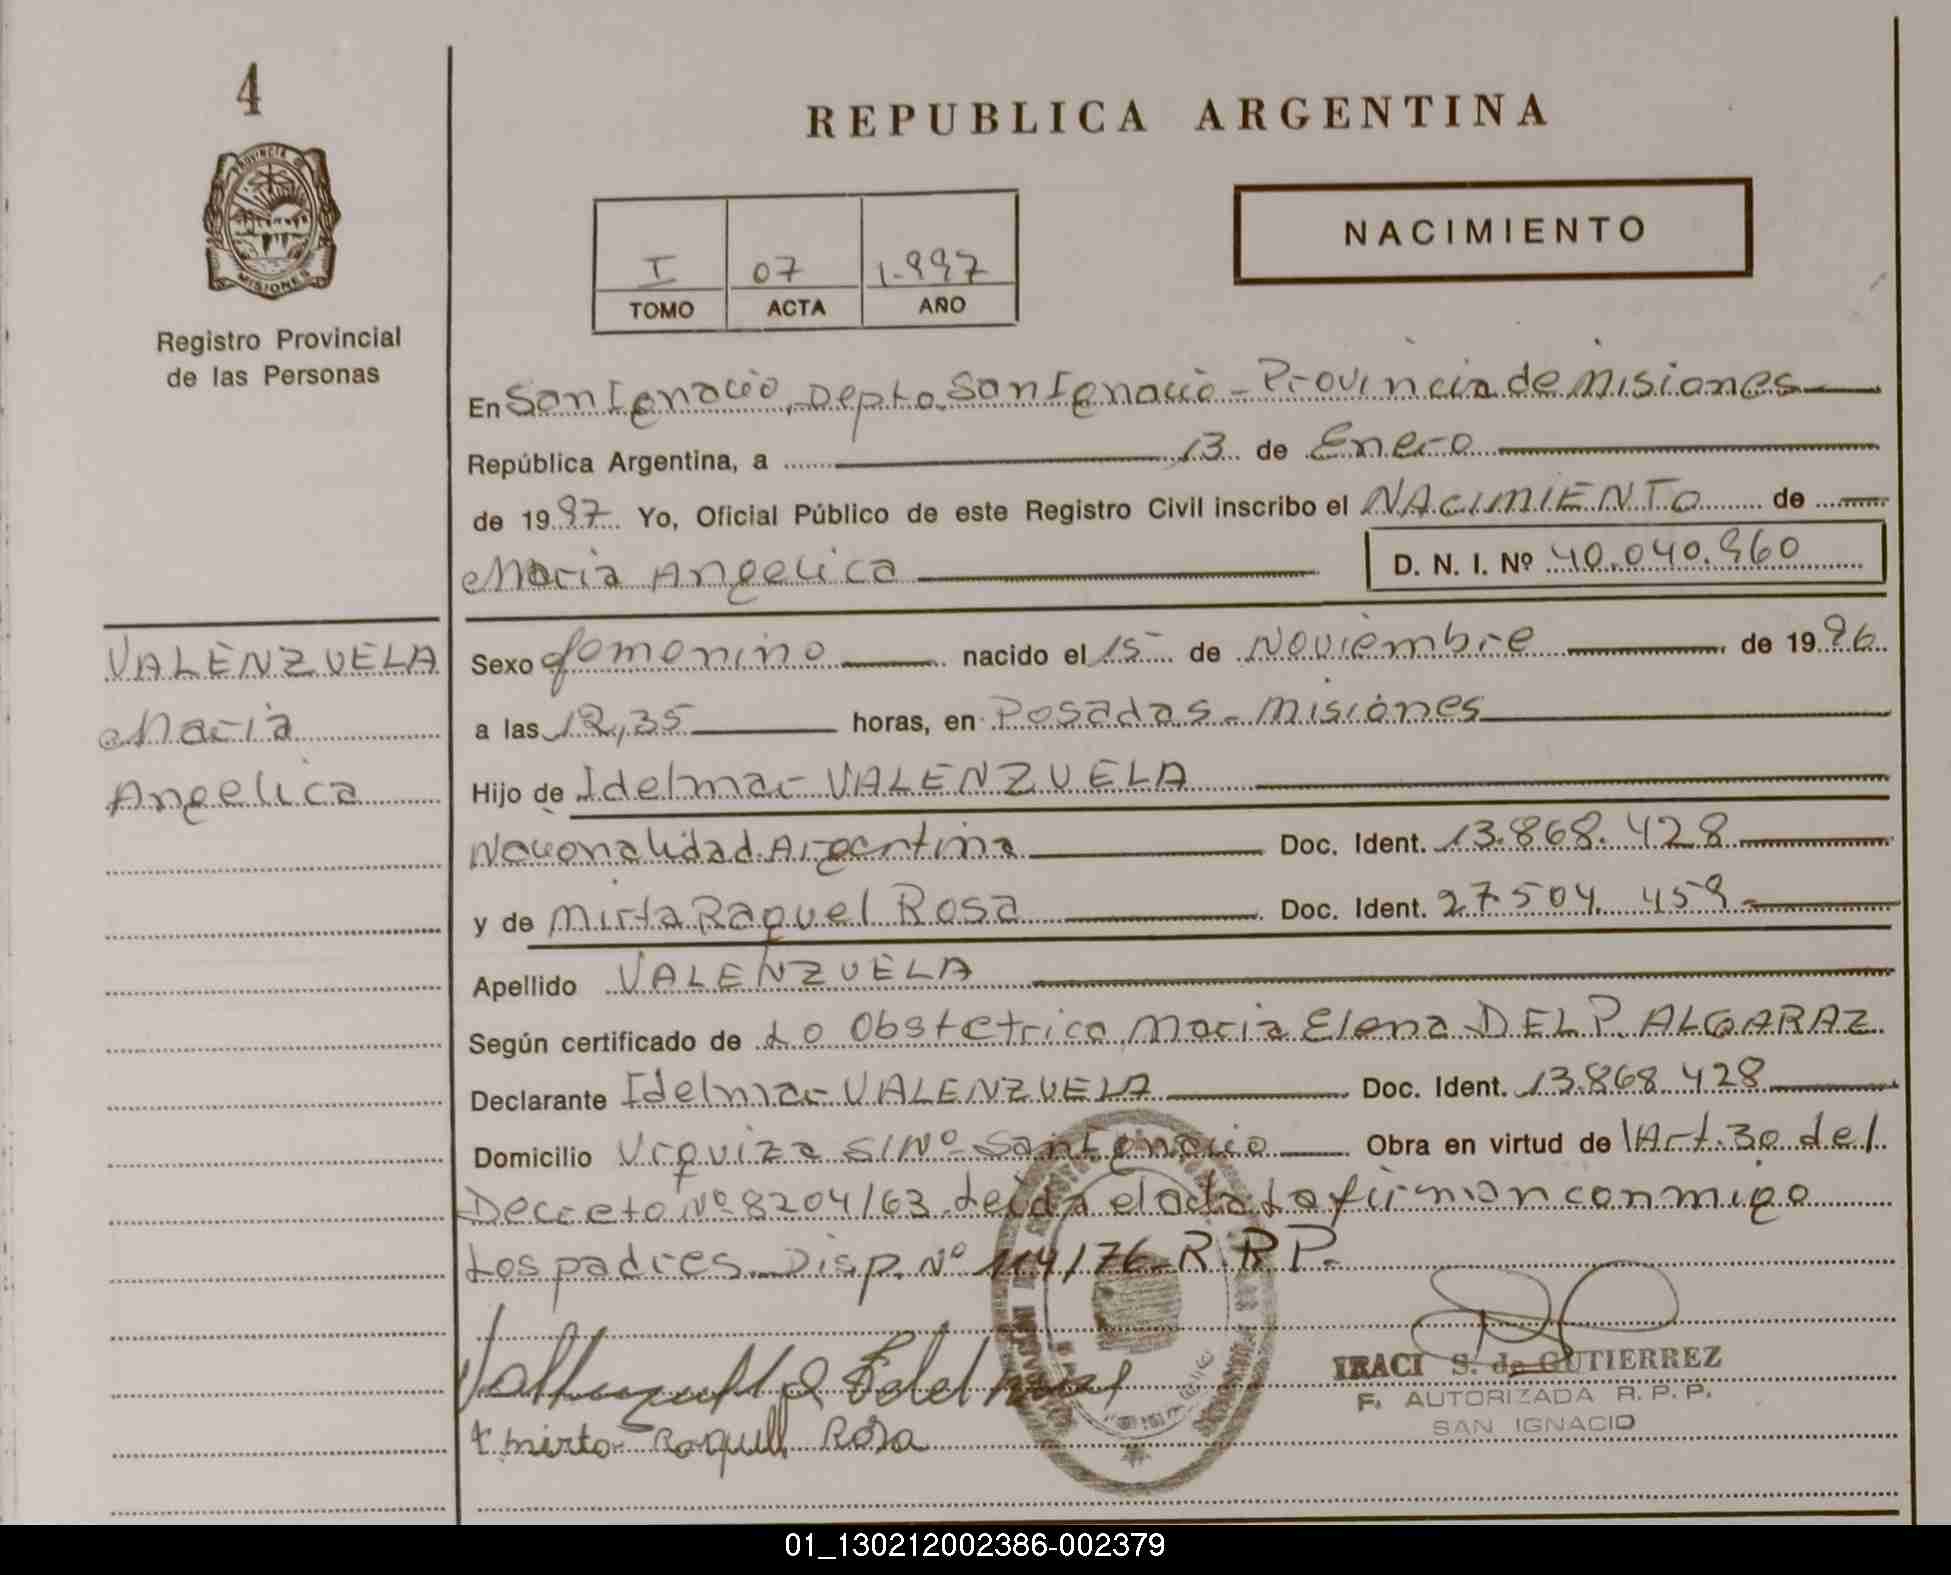 4
PROVINCIA DE
MISIONES
Registro Provincial
de las Personas
REPUBLICA ARGENTINA
I 07 1.997
TOMO ACTA AÑO
NACIMIENTO
En San Ignacio, Depto San Ignacio - Provincia de Misiones
República Argentina, a 13 de Enero
de 1997 Yo, Oficial Público de este Registro Civil inscribo el NACIMIENTO de
Maria Angelica D. N. I. Nº 40.040.960
VALENZUELA
Maria
Angelica
Sexo femenino nacido el 15 de Noviembre de 1996
a las 12,35 horas, en Posadas - Misiones
Hijo de Idelmar VALENZUELA
Nacionalidad Argentina Doc. Ident. 13.868.428
y de Mirta Raquel Rosa Doc. Ident. 27.504.459
Apellido VALENZUELA
Según certificado de La Obstetrica Maria Elena DEL P. ALGARAZ
Declarante Idelmar VALENZUELA Doc. Ident. 13.868.428
Domicilio Urquiza S/Nº San Ignacio Obra en virtud de Art. 30 del
Decreto Nº 8204/63 Leida el acta La firman conmigo
Los padres Disp. Nº 114/76 R.R.P.
IRACI S. de GUTIERREZ
F. AUTORIZADA R. P. P.
SAN IGNACIO
Mirta Raquel Rosa
01_130212002386-002379